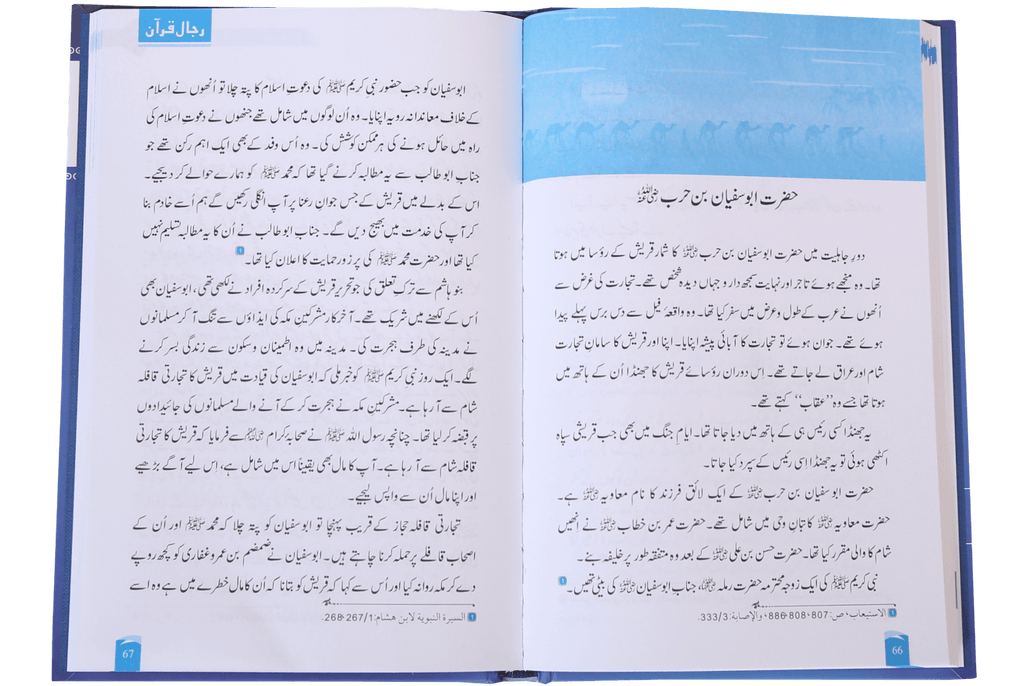 حضرت ابوسفیان بن حرب رضی اللہ عنہ
دورِ جاہلیت میں حضرت ابوسفیان بن حرب رضی اللہ عنہ کا شمار قریش کے رؤسا میں ہوتا
تھا۔ وہ منجھے ہوئے تاجر اور نہایت سمجھ دار و جہاں دیدہ شخص تھے۔ تجارت کی غرض سے
اُنھوں نے عرب کے طول و عرض میں سفر کیا تھا۔ وہ واقعۂ فیل سے دس برس پہلے پیدا
ہوئے تھے۔ جوان ہوئے تو تجارت کا آبائی پیشہ اپنایا۔ اپنا اور قریش کا سامانِ تجارت
شام اور عراق لے جاتے تھے۔ اِس دوران رؤسائے قریش کا جھنڈا اُن کے ہاتھ میں
ہوتا تھا جسے وہ ’’عقاب‘‘ کہتے تھے۔
یہ جھنڈا کسی رئیس ہی کے ہاتھ میں دیا جاتا تھا۔ ایامِ جنگ میں بھی جب قریشی سپاہ
اکٹھی ہوئی تو یہ جھنڈا اسی رئیس کے سپرد کیا جاتا۔
حضرت ابوسفیان بن حرب رضی اللہ عنہ کے ایک لائق فرزند کا نام معاویہ رضی اللہ عنہ ہے۔
حضرت معاویہ رضی اللہ عنہ کاتبانِ وحی میں شامل تھے۔ حضرت عمر بن خطاب رضی اللہ عنہ نے انھیں
شام کا والی مقرر کیا تھا۔ حضرت حسن بن علی رضی اللہ عنہ کے بعد وہ متفقہ طور پر خلیفہ بنے۔
نبی کریم ﷺ کی ایک زوجہ محترمہ حضرت رملہ رضی اللہ عنہا، جناب ابوسفیان رضی اللہ عنہ کی بیٹی تھیں۔ 1
1 الاستیعاب، ص: 807، 808، 886، والإصابة: 333/3.
66
رجال قرآن
ابوسفیان کو جب حضور نبی کریم ﷺ کی دعوتِ اسلام کا پتہ چلا تو اُنھوں نے اسلام
کے خلاف معاندانہ رویہ اپنایا۔ وہ اُن لوگوں میں شامل تھے جنھوں نے دعوتِ اسلام کی
راہ میں حائل ہونے کی ہر ممکن کوشش کی۔ وہ اُس وفد کے بھی ایک اہم رکن تھے جو
جناب ابوطالب سے یہ مطالبہ کرنے گیا تھا کہ محمد ﷺ کو ہمارے حوالے کر دیجیے۔
اس کے بدلے میں قریش کے جس جوانِ رعنا پر آپ انگلی رکھیں گے ہم اُسے خادم بنا
کر آپ کی خدمت میں بھیج دیں گے۔ جناب ابوطالب نے اُن کا یہ مطالبہ تسلیم نہیں
کیا تھا اور حضرت محمد ﷺ کی پر زور حمایت کا اعلان کیا تھا۔ 1
بنو ہاشم سے ترکِ تعلق کی جو تحریر قریش کے سرکردہ افراد نے لکھی تھی، ابوسفیان بھی
اُس کے لکھنے میں شریک تھے۔ آخر کار مشرکینِ مکہ کی ایذاؤں سے تنگ آ کر مسلمانوں
نے مدینہ کی طرف ہجرت کی۔ مدینہ میں وہ اطمینان و سکون سے زندگی بسر کرنے
لگے۔ ایک روز نبی کریم ﷺ کو خبر ملی کہ ابوسفیان کی قیادت میں قریش کا تجارتی قافلہ
شام سے آ رہا ہے۔ مشرکین مکہ نے ہجرت کر کے آنے والے مسلمانوں کی جائیدادوں
پر قبضہ کر لیا تھا۔ چنانچہ رسول اللہ ﷺ نے صحابۂ کرام رضی اللہ عنہم سے فرمایا کہ قریش کا تجارتی
قافلہ شام سے آ رہا ہے۔ آپ کا مال بھی یقیناً اس میں شامل ہے، اِس لیے آگے بڑھیے
اور اپنا مال اُن سے واپس لیجیے۔
تجارتی قافلہ حجاز کے قریب پہنچا تو ابوسفیان کو پتہ چلا کہ محمد ﷺ اور اُن کے
اصحاب قافلے پر حملہ کرنا چاہتے ہیں۔ ابوسفیان نے ضمضم بن عمرو غفاری کو کچھ روپے
دے کر مکہ روانہ کیا اور اُس سے کہا کہ قریش کو بتانا کہ اُن کا مال خطرے میں ہے وہ اسے
1 السيرة النبوية لابن هشام: 267/1، 268.
67